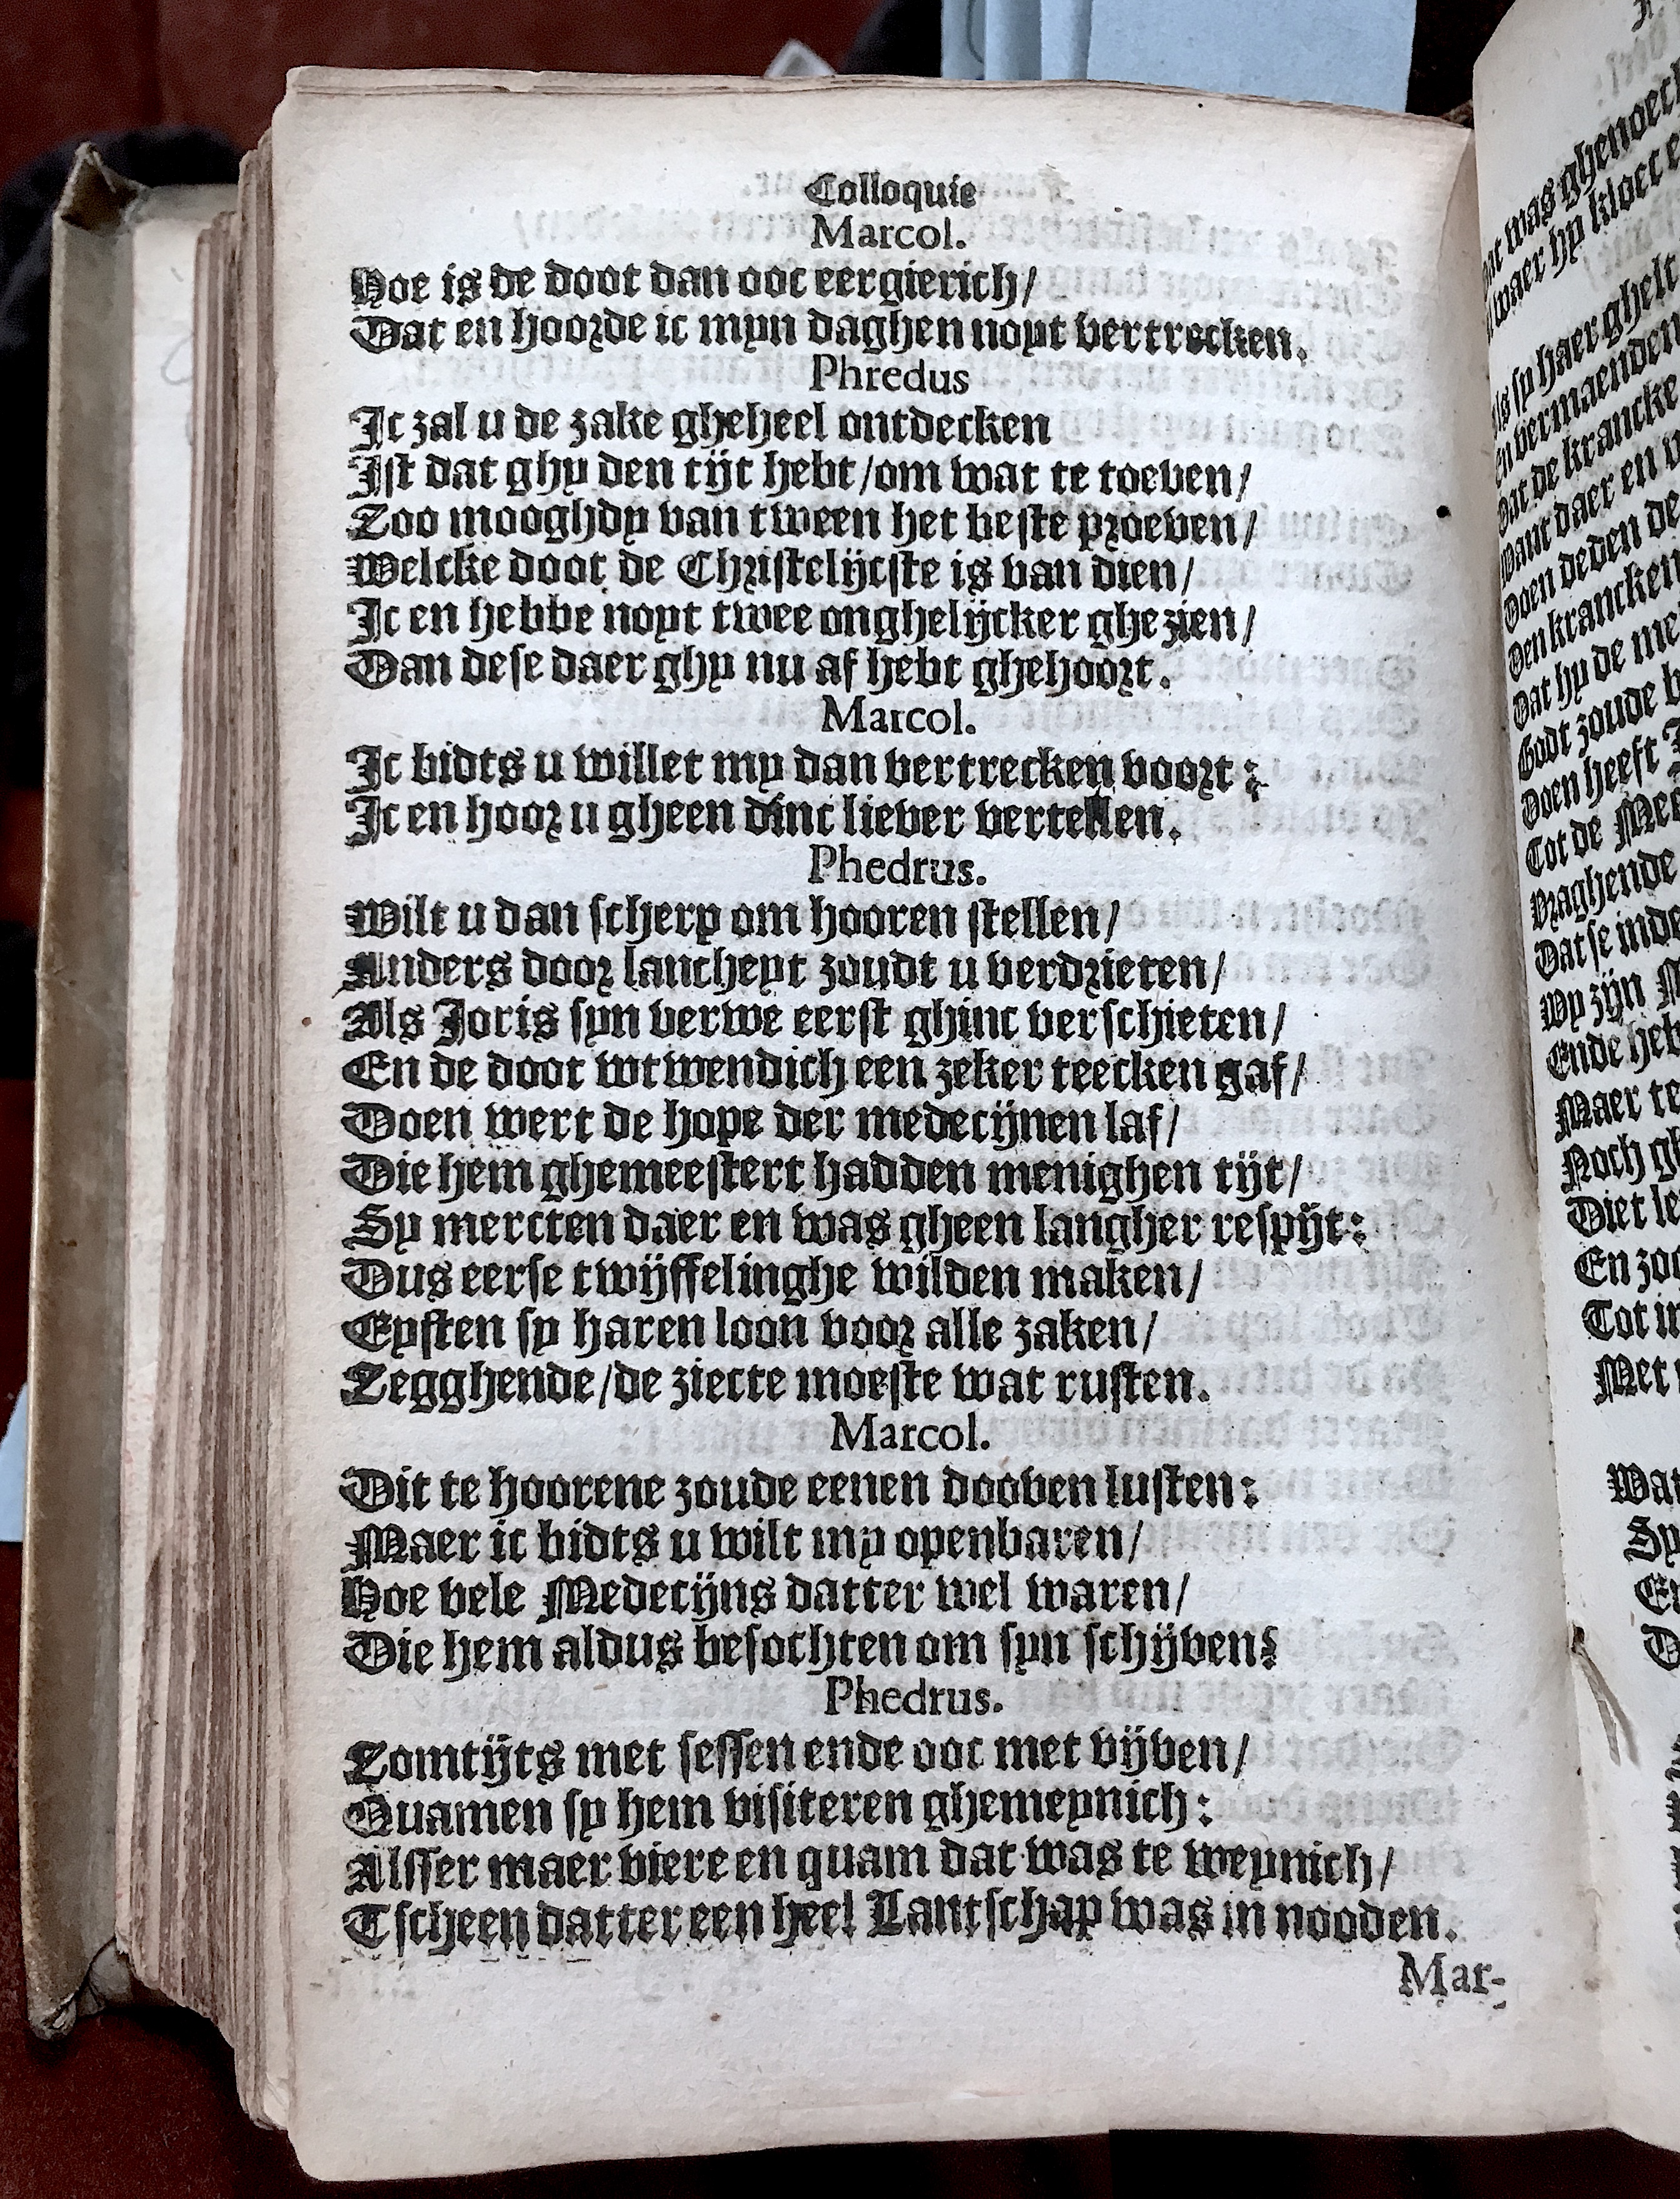 Colloquie
Marcol.
Hoe is de doot dan ooc eergierich/
Dat en hoorde ic myn daghen noyt vertrecken.
Phredus
Ic zal u de zake gheheel ontdecken
Ist dat ghy den tijt hebt/om wat te toeven/
Zoo mooghdy van tween het beste proeven/
Welcke doot de Christelijcste is van dien/
Ic en hebbe noyt twee onghelijcker ghezien/
Dan dese daer ghy nu af hebt ghehoort.
Marcol.
Ic bidts u willet my dan vertrecken voort:
Ic en hoor u gheen dinc liever vertellen.
Phedrus.
Wilt u dan scherp om hooren stellen/
Anders door lancheyt zoudt u verdrieten/
Als Joris syn verwe eerst ghinc verschieten/
En de doot wtwendich een zeker teecken gaf/
Doen wert de hope der medecijnen laf/
Die hem ghemeestert hadden menighen tijt/
Sy mercten daer en was gheen langher respijt:
Dus eerse twijffelinghe wilden maken/
Eysten sy haren loon voor alle zaken/
Zegghende/de ziecte moeste wat rusten.
Marcol.
Dit te hoorene zoude eenen dooven lusten:
Maer ic bidts u wilt my openbaren/
Hoe vele Medecijns datter wel waren/
Die hem aldus besochten om syn schijven?
Phedrus.
Zomtijts met sessen ende ooc met vijven/
Quamen sy hem visiteren ghemeynich:
Alsser maer viere en quam dat was te weynich/
Tscheen datter een heel Lantschap was in nooden.
Mar-